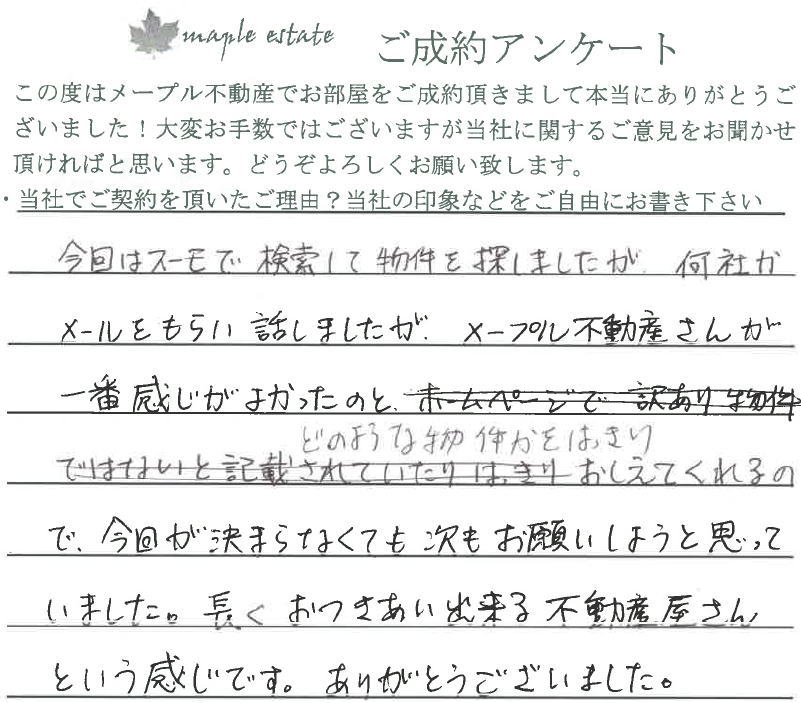 maple estate ご成約アンケート
この度はメープル不動産でお部屋をご成約頂きまして本当にありがとうご
ざいました！大変お手数ではございますが当社に関するご意見をお聞かせ
頂ければと思います。どうぞよろしくお願い致します。
・当社でご契約を頂いたご理由？当社の印象などをご自由にお書き下さい
今回はスーモで検索して物件を探しましたが、何社か
メールをもらい話しましたが、メープル不動産さんが
一番感じがよかったのと、ホームページで訳あり物件
どのような物件かをはっきり
ではないと記載されていたりはっきりおしえてくれるの
で、今回が決まらなくても次もお願いしようと思って
いました。長くおつきあい出来る不動産屋さん
という感じです。ありがとうございました。